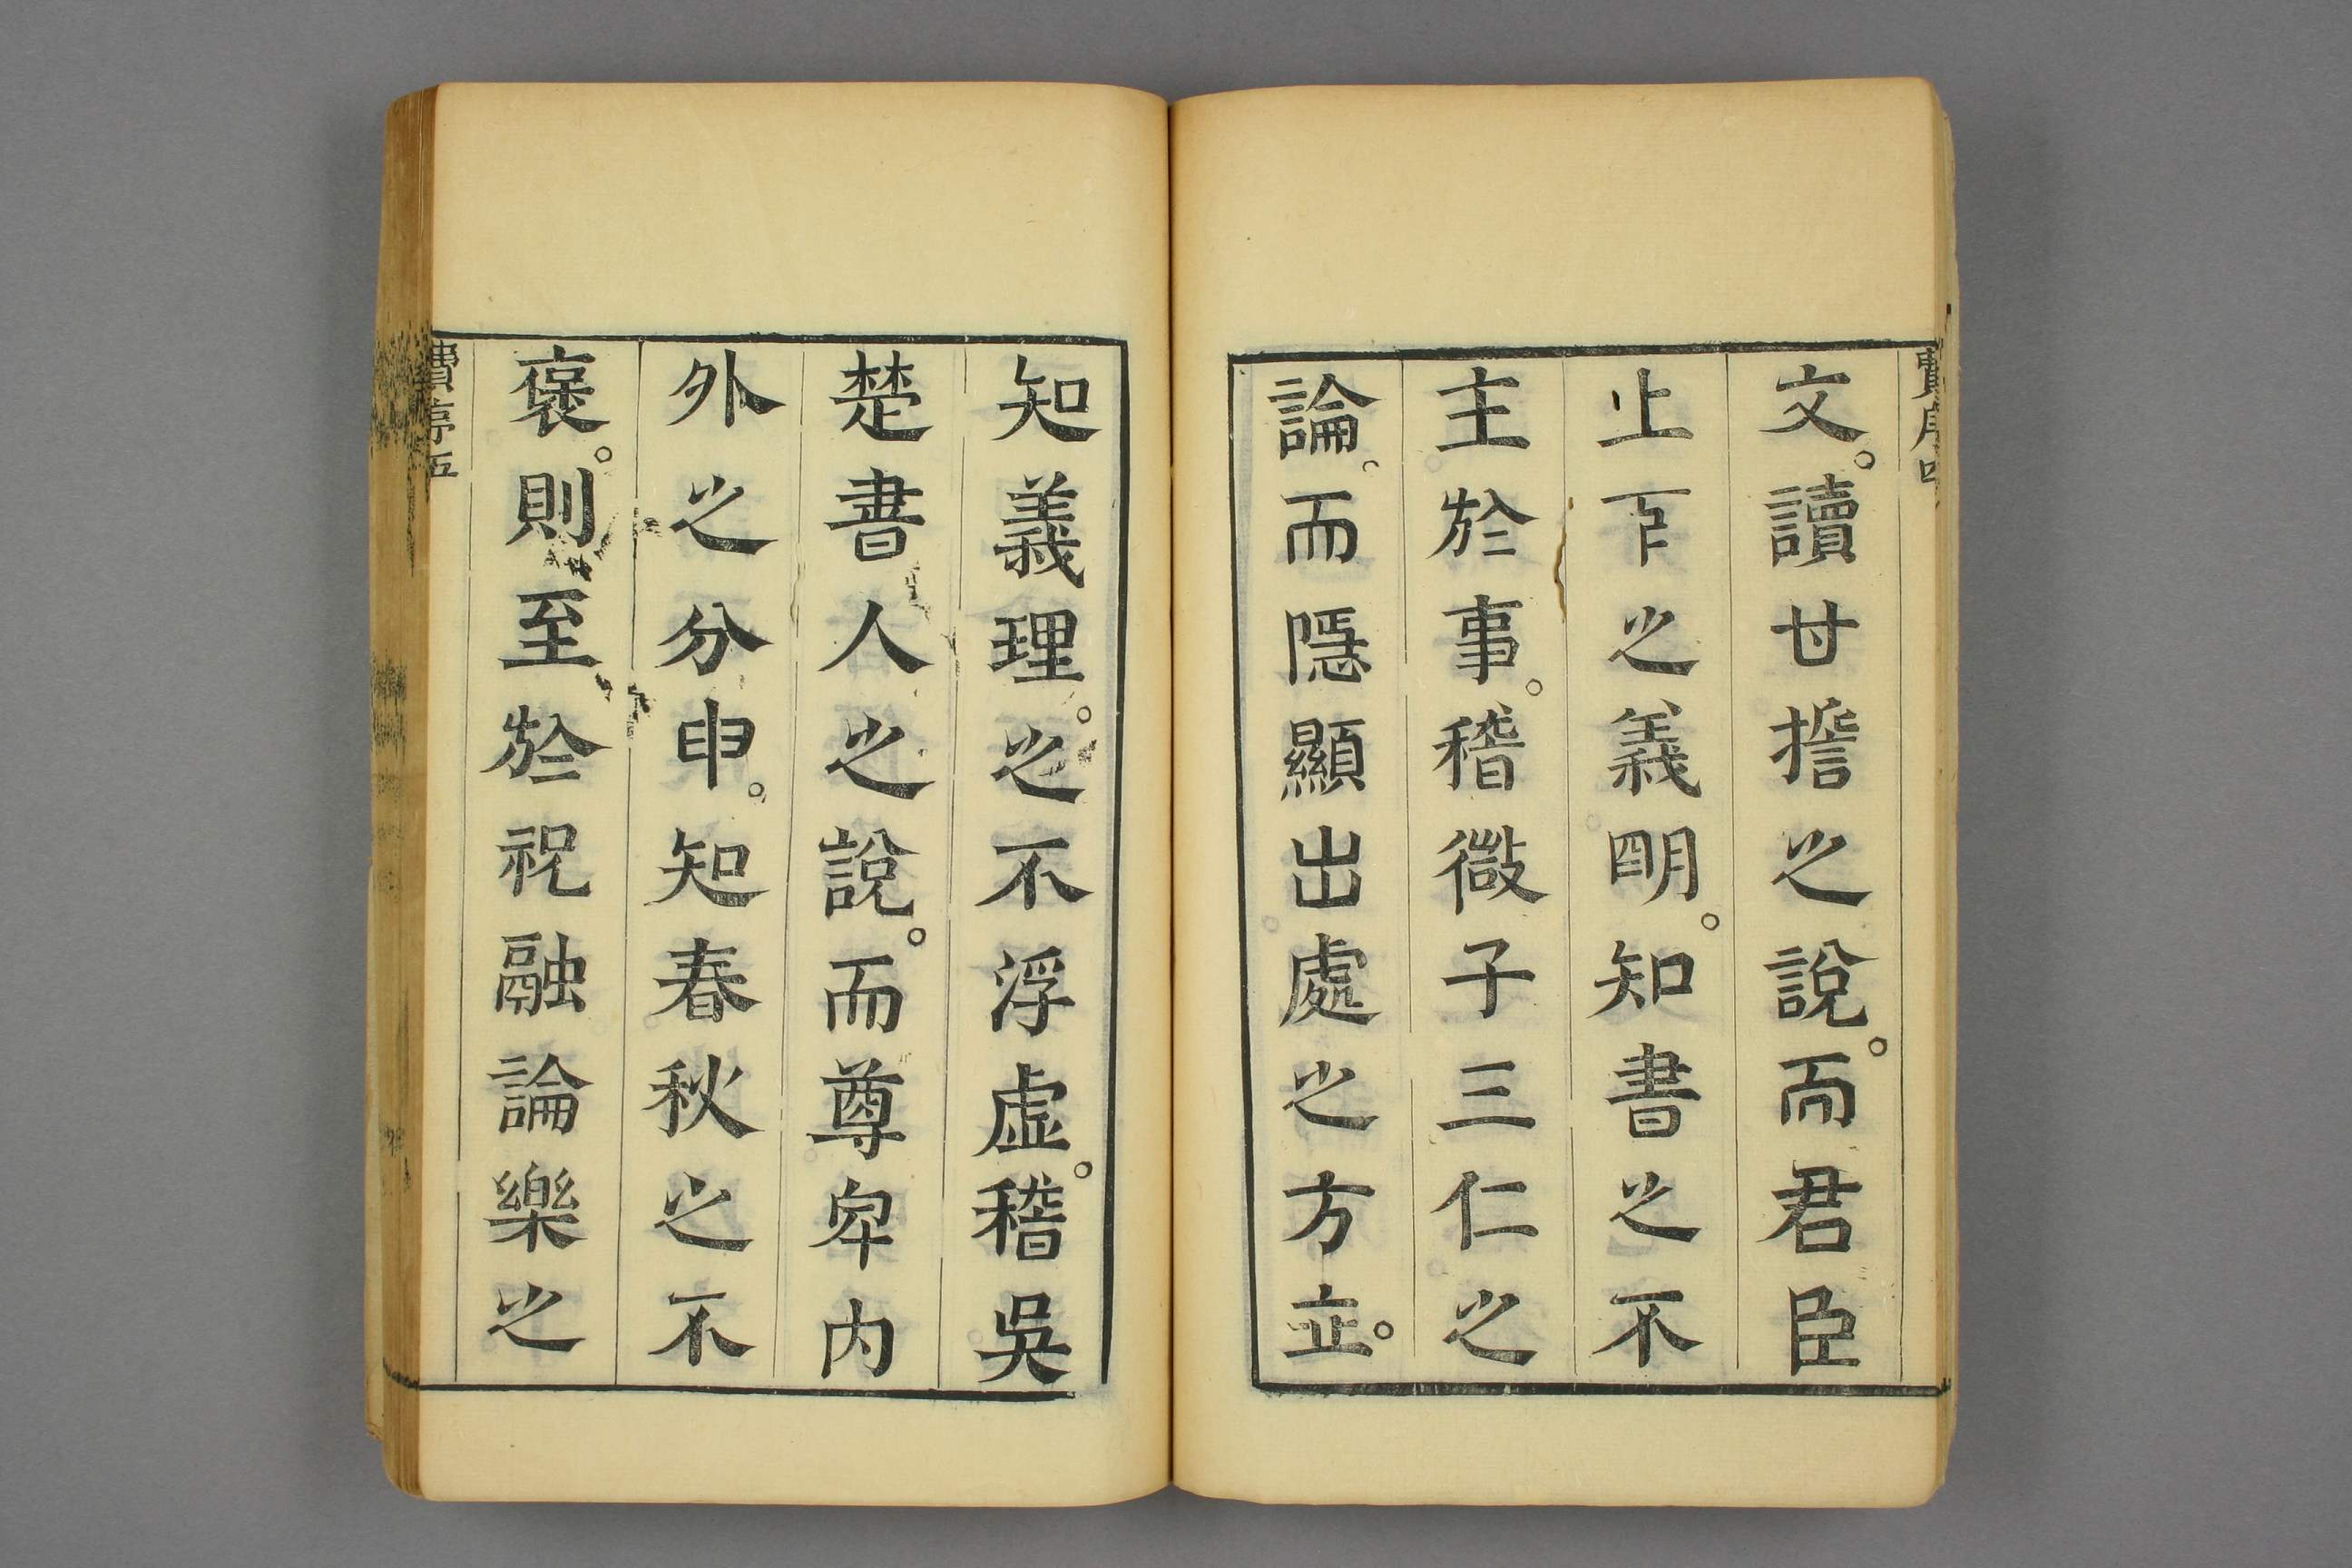 費序四
文。讀甘誓之說。而君臣
上下之義明。知書之不
主於事。稽微子三仁之
論。而隱顯出處之方立。
知義理。之不浮虛。稽吳
楚書人之說。而尊卑內
外之分申。知春秋之不
褒。則至於祝融論樂之
費序五